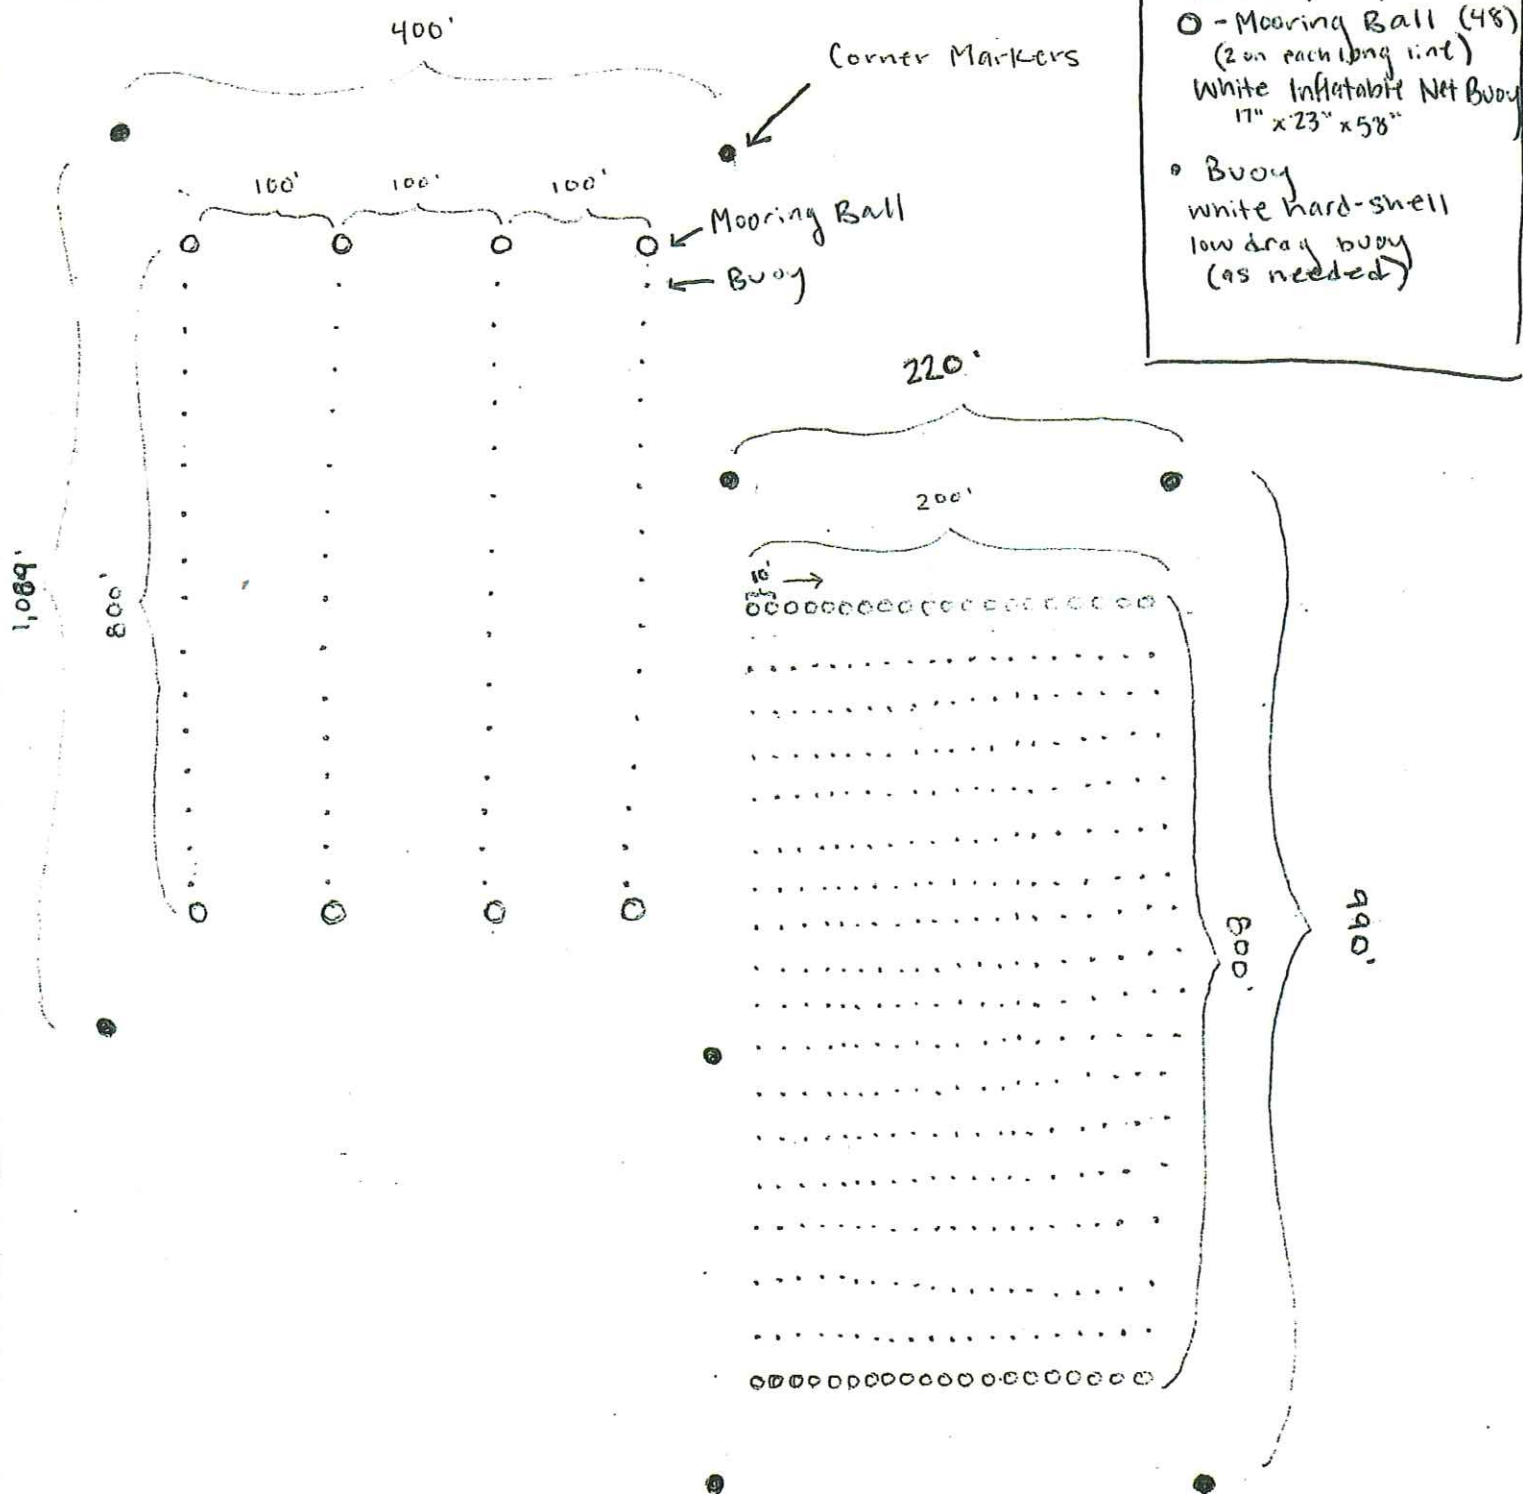 400'
Corner Markers
100'
100'
100'
Mooring Ball
Buoy
1,089'
800'
O - Mooring Ball (48)
(2 on each long line)
White Inflatable Net Buoy
17" x 23" x 58"
• Buoy
white hard-shell
low drag buoy
(as needed)
220'
200'
10'
800'
990'